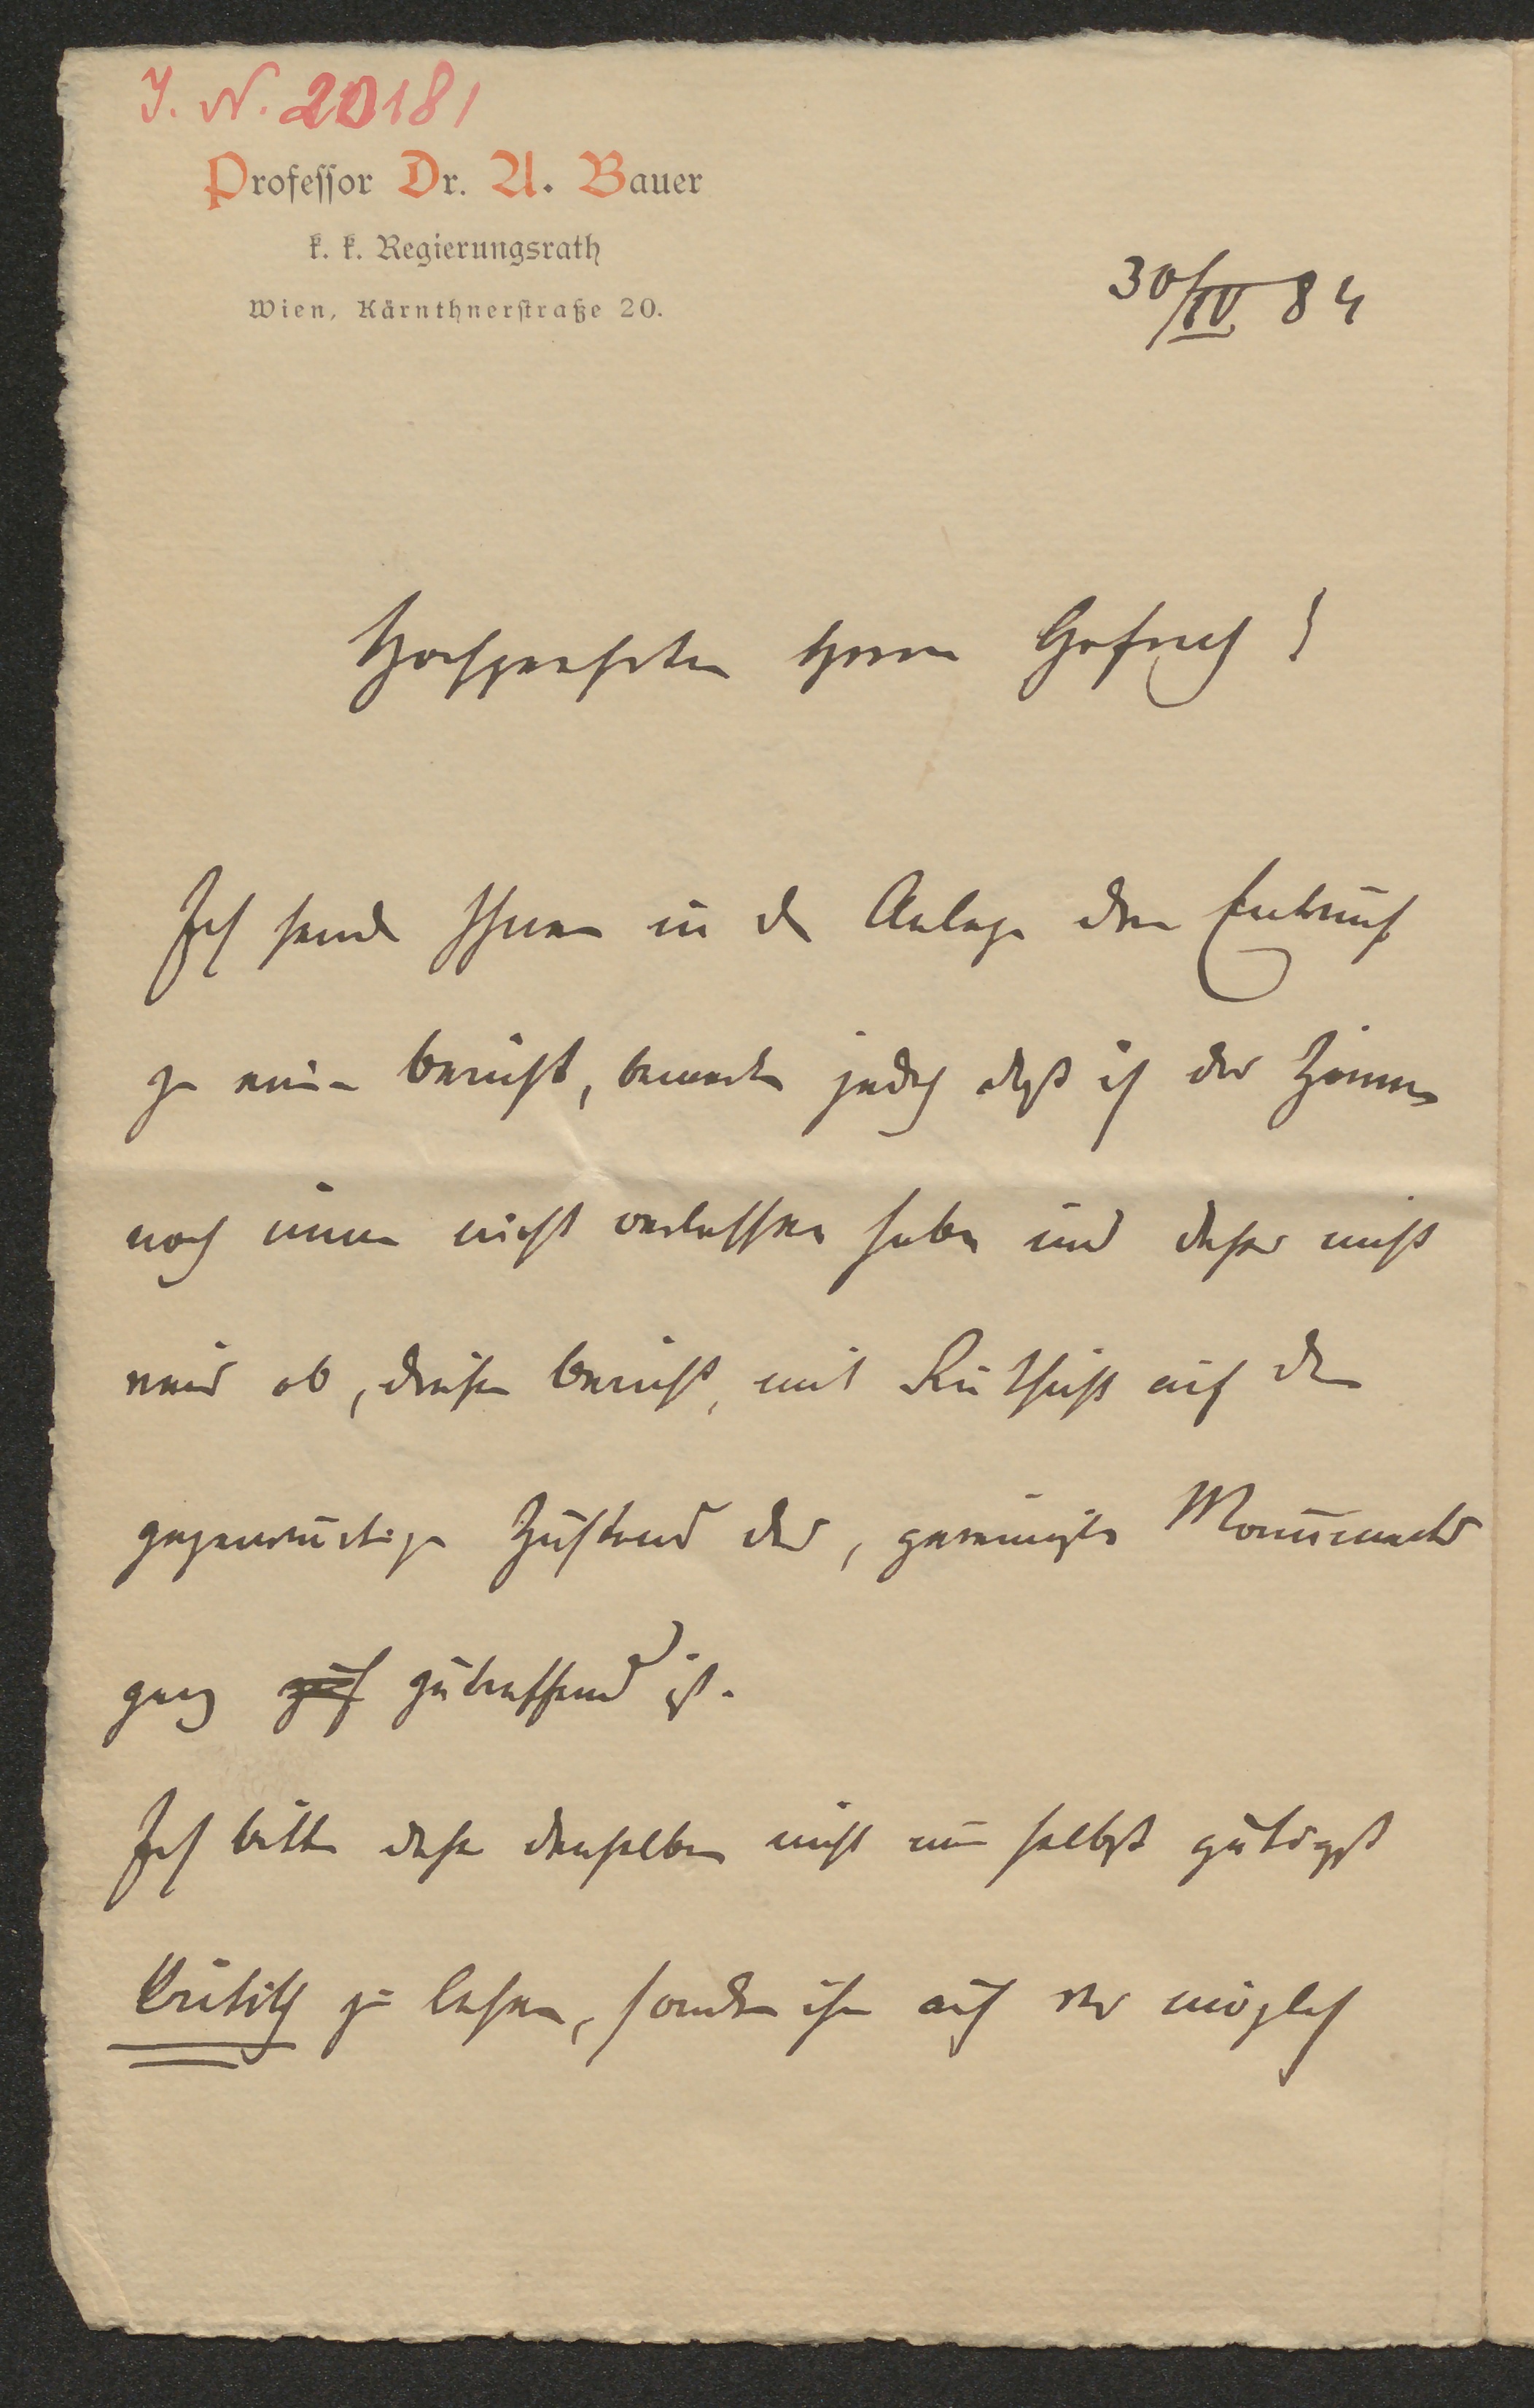 J. N. 20181
Professor Dr. A. Bauer
k. k. Regierungsrath
Wien, Kärnthnerstraße 20.
30/IV 84
Hochgeehrter Herr Hofrath!
Ich sende Ihnen in der Anlage den Entwurf
zu einem Bericht, bemerke jedoch daß ich das Zimmer
noch immer nicht verlassen habe und daher nicht
weiß ob, dieser Bericht, mit Rücksicht auf den
gegenwärtigen Zustand des, gereinigten Monumentes
ganz zutreffend ist.
Ich bitte daher denselben nicht nur selbst gütigst
kritisch zu lesen, sondern ihn auch wo möglich